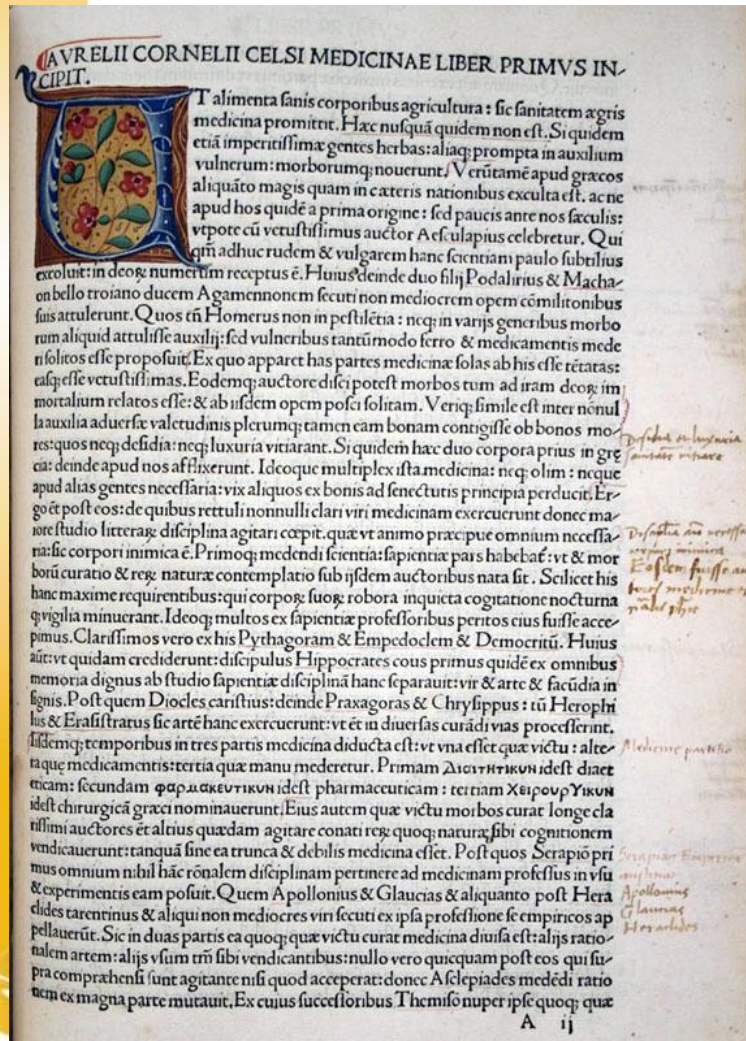 AVRELII CORNELII CELSI MEDICINAE LIBER PRIMVS IN-
CIPIT.
VT alimenta sanis corporibus agricultura: sic sanitatem ægris
medicina promittit. Hæc nusquã quidem non est. Si quidem
etiã imperitissimæ gentes herbas: aliaq; prompta in auxilium
vulnerum: morborumq; nouerunt. Verũtamẽ apud græcos
aliquãto magis quam in cæteris nationibus exculta est. ac ne
apud hos quidẽ a prima origine: sed paucis ante nos sæculis:
vtpote cũ vetustissimus auctor Aesculapius celebretur. Qui
qm̃ adhuc rudem & vulgarem hanc scientiam paulo subtilius
excoluit: in deoꝝ numerum receptus ẽ. Huius deinde duo filij Podalirius & Macha-
on bello troiano ducem Agamennonem secuti non mediocrem opem cõmilitonibus
suis attulerunt. Quos tñ Homerus non in pestilẽtia: neq; in varijs generibus morbo
rum aliquid attulisse auxilij: sed vulneribus tantũmodo ferro & medicamentis mede
ri solitos esse proposuit. Ex quo apparet has partes medicinæ solas ab his esse tẽtatas:
easq; esse vetustissimas. Eodemq; auctore disci potest morbos tum ad iram deoꝝ im
mortalium relatos esse: & ab iisdem opem posci solitam. Veriq; simile est inter nõnul
la auxilia aduersæ valetudinis plerumq; tamen eam bonam contigisse ob bonos mo-
res: quos neq; desidia: neq; luxuria vitiarant. Si quidem̃ hæc duo corpora prius in grę
cia: deinde apud nos afflixerunt. Ideoque multiplex ista medicina: neq; olim: neque
apud alias gentes necessaria: vix aliquos ex bonis ad senectutis principia perducit. Er-
go ẽt post eos: de quibus rettuli nonnulli clari viri medicinam exercuerunt donec ma-
iore studio litteraꝝ disciplina agitari cœpit. quæ vt animo præcipue omnium necessa-
ria: sic corpori inimica ẽ. Primoq; medendi scientia: sapientiæ pars habebat̃: vt & mor
borũ curatio & reꝝ naturæ contemplatio sub ijsdem auctoribus nata sit. Scilicet his
hanc maxime requirentibus: qui corpoꝝ suoꝝ robora inquieta cogitatione nocturna
q; vigilia minuerant. Ideoq; multos ex sapientiæ professoribus peritos eius fuisse acce-
pimus. Clarissimos vero ex his Pythagoram & Empedoclem & Democritũ. Huius
aũt: vt quidam crediderunt: discipulus Hippocrates cous primus quidẽ ex omnibus
memoria dignus ab studio sapientiæ disciplinã hanc separauit: vir & arte & facũdia in
signis. Post quem Diocles caristius: deinde Praxagoras & Chrysippus: tũ Herophi
lus & Erasistratus sic artẽ hanc exercuerunt: vt ẽt in diuersas curãdi vias processerint.
Iisdemq; temporibus in tres partis medicina diducta est: vt vna esset quæ victu: alte-
ra quę medicamentis: tertia quæ manu mederetur. Primam Διαιτητικυν idest diaet
eticam: secundam φαρμακευτικυν idest pharmaceuticam: tertiam Χειρουργικυν
idest chirurgicã græci nominauerunt. Eius autem quæ victu morbos curat longe cla
rissimi auctores ẽt altius quædam agitare conati reꝝ quoq; naturæ sibi cognitionem
vendicauerunt: tanquã sine ea trunca & debilis medicina esset. Post quos Serapiõ pri
mus omnium nihil hãc rõnalem disciplinam pertinere ad medicinam professus in vsu
& experimentis eam posuit. Quem Apollonius & Glaucias & aliquanto post Hera
clides tarentinus & aliqui non mediocres viri secuti ex ipsa professione se empiricos ap
pellauerũt. Sic in duas partis ea quoq; quæ victu curat medicina diuisa est: alijs ratio-
nalem artem: alijs vsum tm̃ sibi vendicantibus: nullo vero quicquam post eos qui su-
pra compræhensi sunt agitante nisi quod acceperat: donec Asclepiades medẽdi ratio
nem ex magna parte mutauit. Ex cuius successoribus Themisõ nuper ipse quoq; quæ
A ij
Desidia et luxuria
sanitatẽ vitiare
Disciplina
Eosdem fuisse
Medicine partitio
Serapion
Apollonius
Glaucias
Heraclides